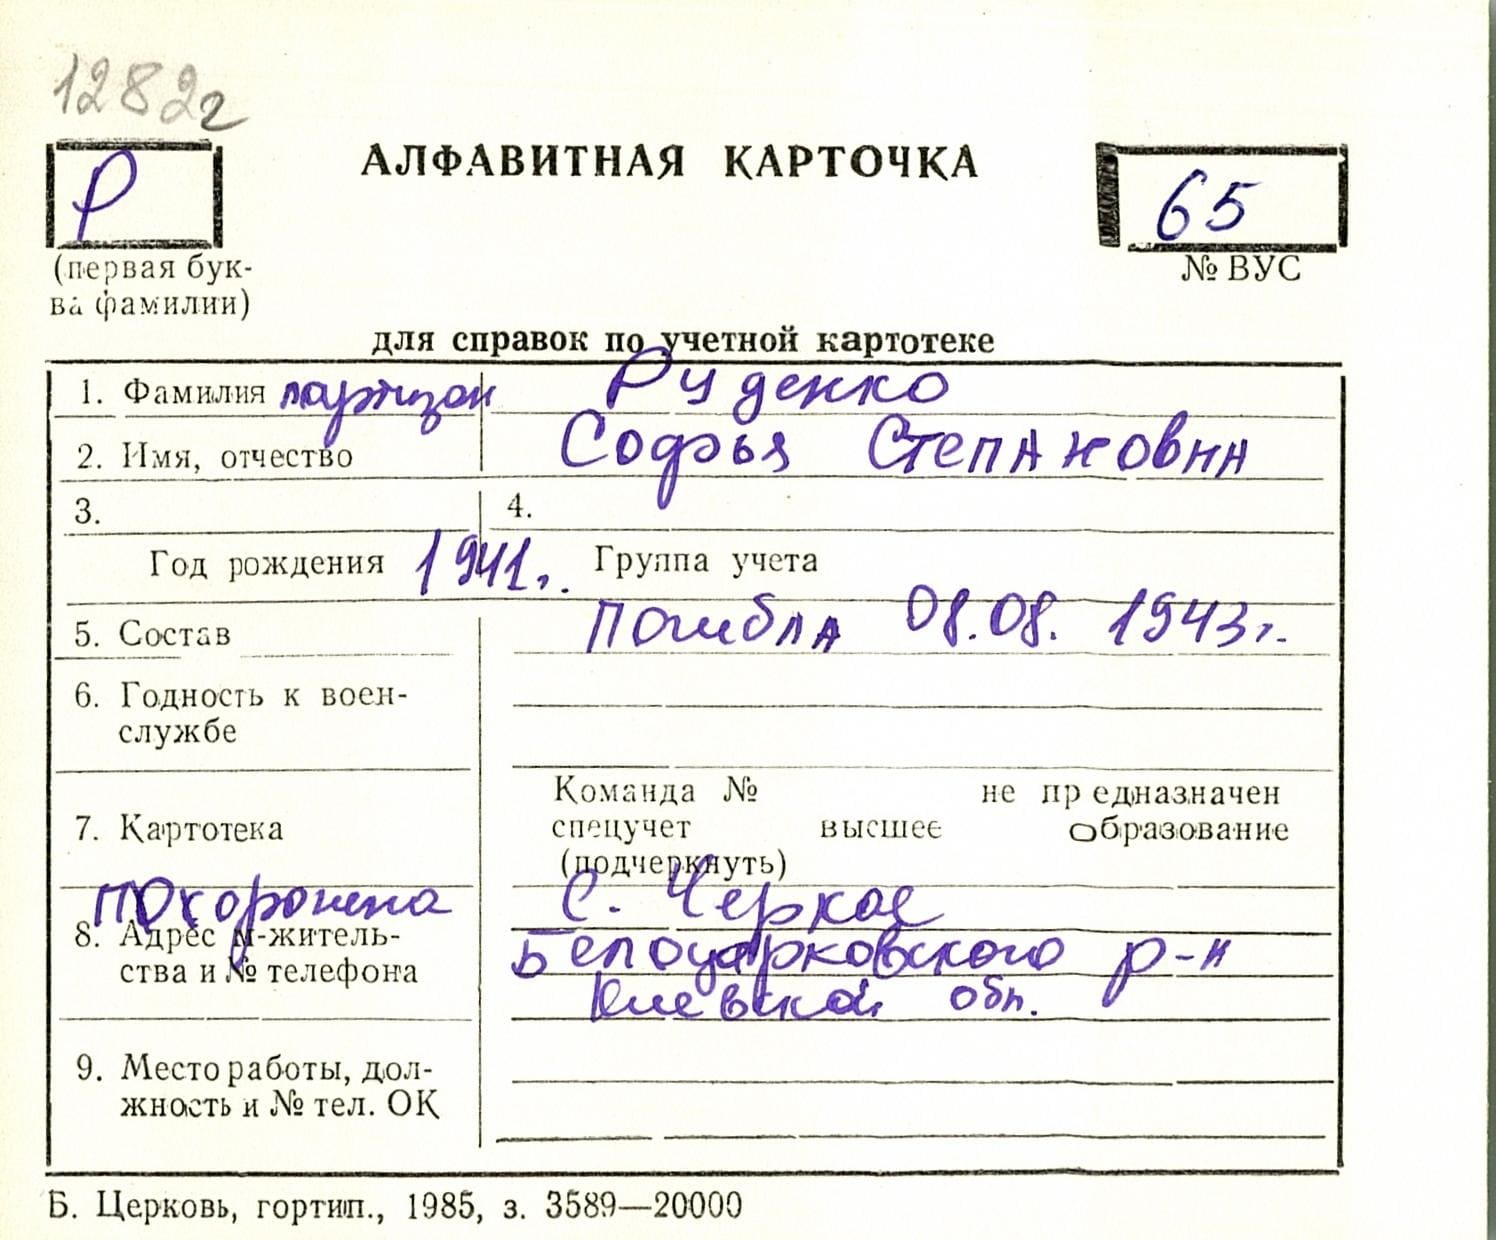 1282г
Р
АЛФАВИТНАЯ КАРТОЧКА
65
(первая бук-
ва фамилии)
№ ВУС
для справок по учетной картотеке
1. Фамилия партизан Руденко
2. Имя, отчество Софья Степановна
3. 4.
Год рождения 1941г. Группа учета
5. Состав Погибла 08.08. 1943г.
6. Годность к воен-
службе
Команда № не предназначен
7. Картотека спецучет высшее образование
(подчеркнуть)
Похоронена с. Черкас
8. Адрес м-житель- Белоцерковского р-н
ства и № телефона Киевской обл.
9. Место работы, дол-
жность и № тел. ОК
Б. Церковь, гортип., 1985, з. 3589—20000